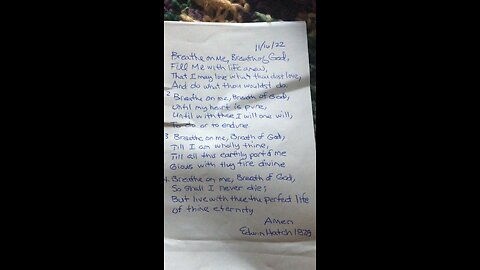 11/16/22
Breathe on Me, Breath of God,
Fill Me with life anew,
That I may love what thou dost love,
And do what thou wouldst do.
2 Breathe on me, Breath of God,
Until my heart is pure,
Until with thee I will one will,
To do or to endure
3 Breathe on me, Breath of God,
Till I am wholly thine,
Till all this earthly part of me
Glows with thy fire divine
4. Breathe on me, Breath of God,
So shall I never die;
But live with thee the perfect life
Of thine eternity
Amen
Edwin Hatch 1829